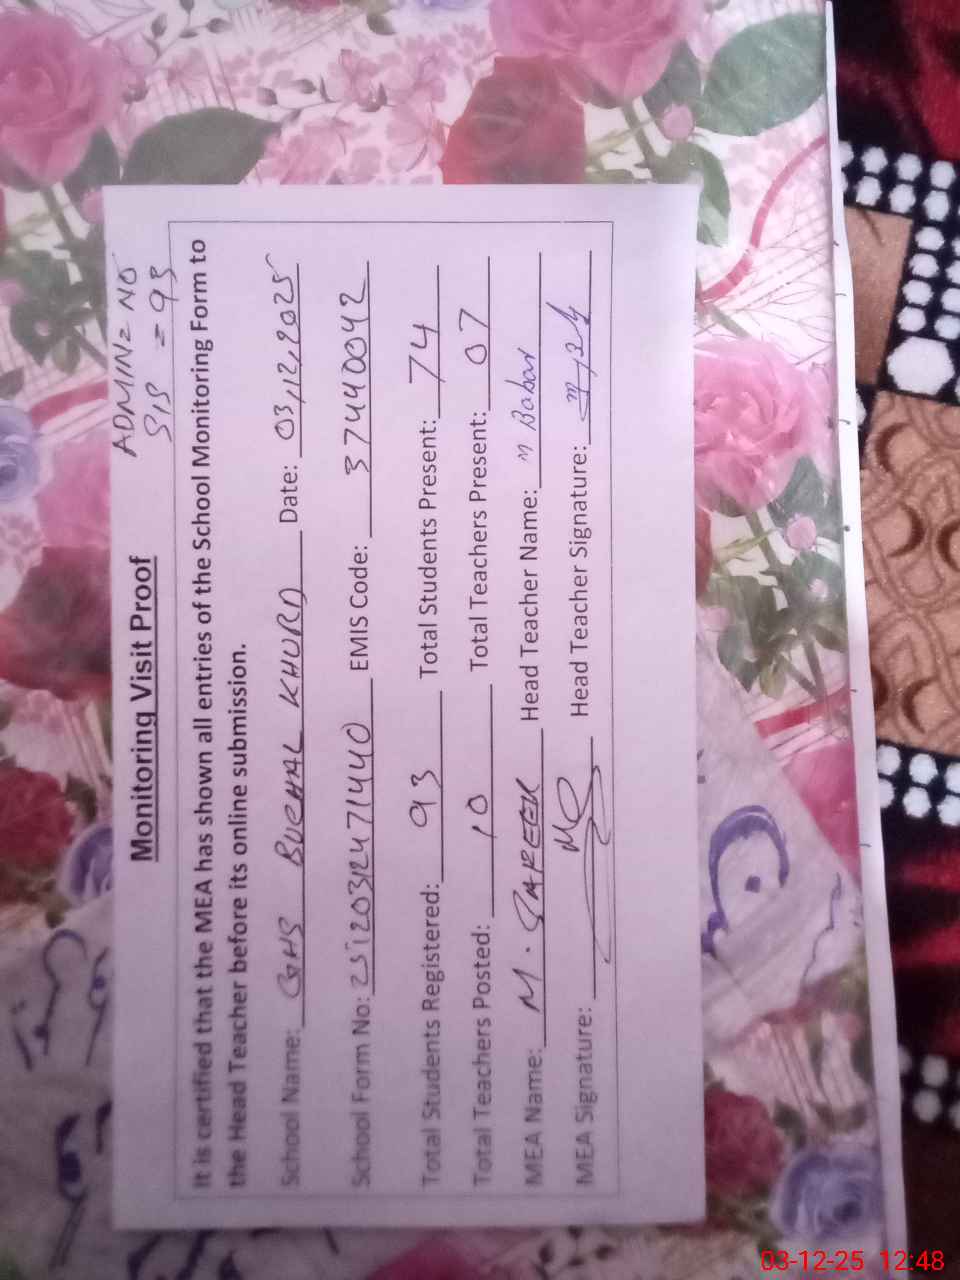 ADMIN= NO
SIS = 93
Monitoring Visit Proof
It is certified that the MEA has shown all entries of the School Monitoring Form to
the Head Teacher before its online submission.
School Name: GHS BUCHAL KHURD Date: 03,12,2025
School Form No: EMIS Code: 37440042
Total Students Registered: 93 Total Students Present: 74
Total Teachers Posted: 10 Total Teachers Present: 07
MEA Name: M. Head Teacher Name: M Babar
MEA Signature: Head Teacher Signature:
03-12-25 12:48